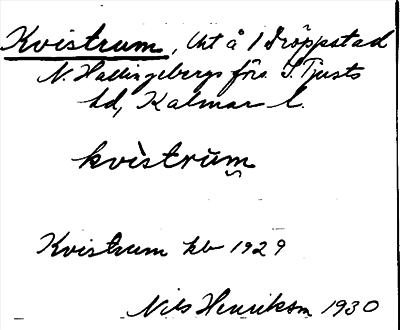 Kvistrum, Uht å 1 Dröppstad
N. Hallingebergs förs. S. Tjusts
hd, Kalmar l.
kvìstrŭm
Kvistrum kb 1929
Nils Henrikson 1930